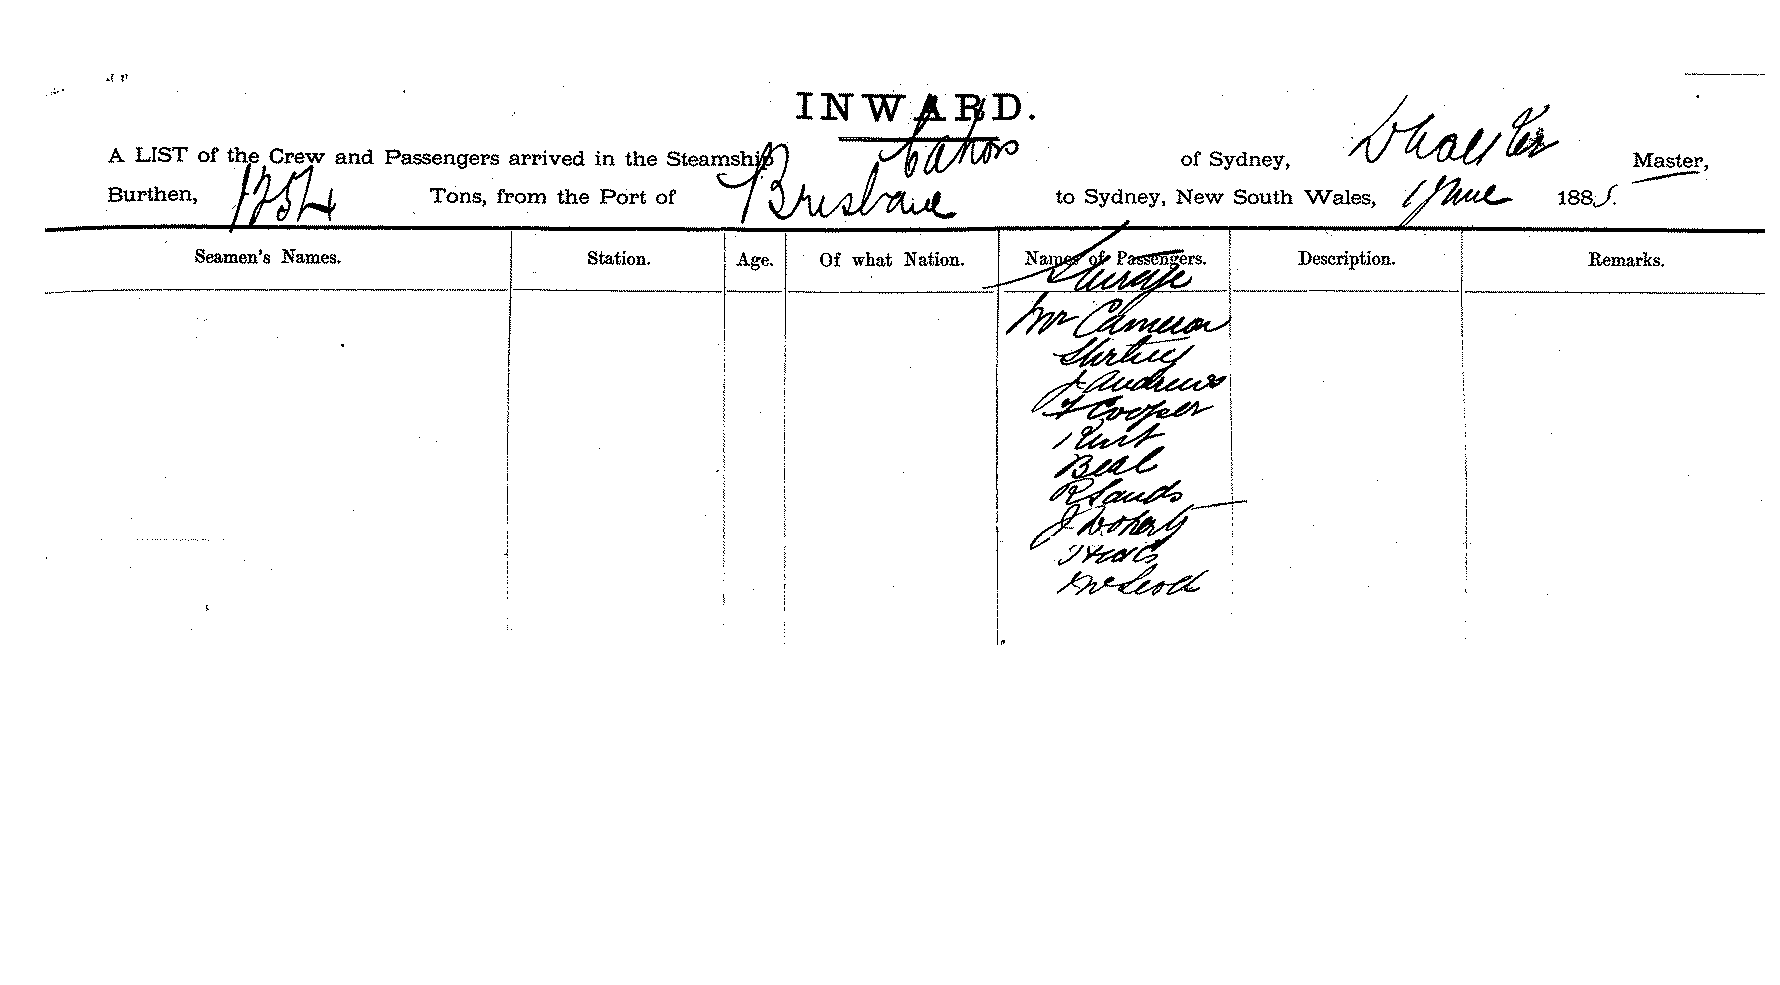 INWARD.
A LIST of the Crew and Passengers arrived in the Steamship Cahors of Sydney, Master,
Burthen, 1254 Tons, from the Port of Brisbane to Sydney, New South Wales, 1 June 1885.
Seamen's Names. Station. Age. Of what Nation. Names of Passengers. Description. Remarks.
Steerage
Mr Cameron
J Andrews
F Cooper
Kent
Beal
R Sands
J Doherty
McLeod